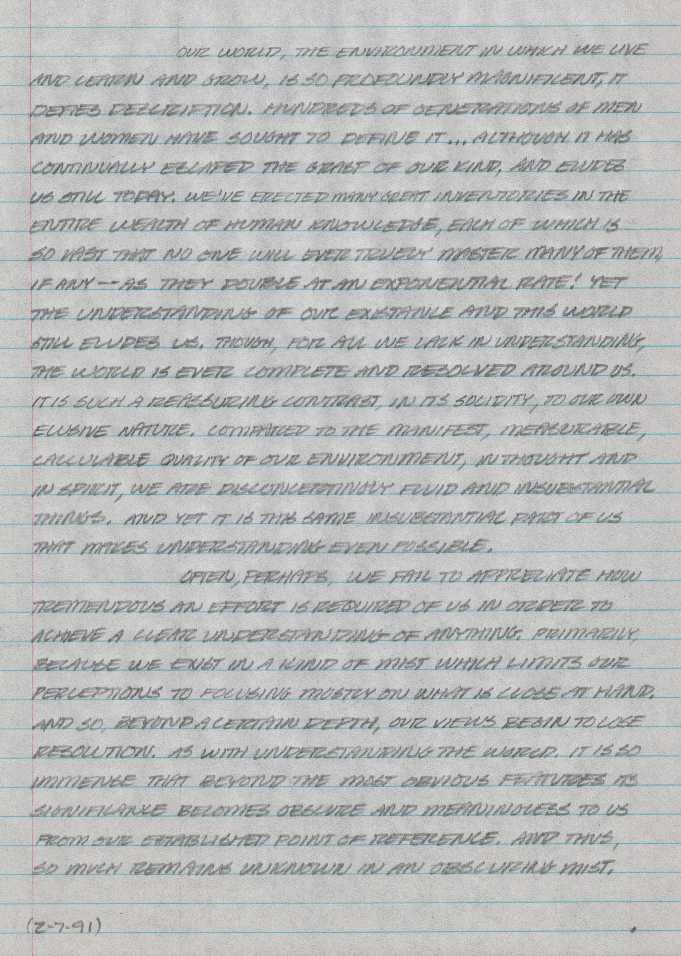 OUR WORLD, THE ENVIRONMENT IN WHICH WE LIVE
AND LEARN AND GROW, IS SO PROFOUNDLY MAGNIFICENT, IT
DEFIES DESCRIPTION. HUNDREDS OF GENERATIONS OF MEN
AND WOMEN HAVE SOUGHT TO DEFINE IT... ALTHOUGH IT HAS
CONTINUALLY ESCAPED THE GRASP OF OUR KIND, AND ELUDES
US STILL TODAY. WE'VE ERECTED MANY GREAT INVENTORIES IN THE
ENTIRE WEALTH OF HUMAN KNOWLEDGE, EACH OF WHICH IS
SO VAST THAT NO ONE WILL EVER TRUELY MASTER MANY OF THEM,
IF ANY -- AS THEY DOUBLE AT AN EXPONENTIAL RATE! YET
THE UNDERSTANDING OF OUR EXISTANCE AND THIS WORLD
STILL ELUDES US. THOUGH, FOR ALL WE LACK IN UNDERSTANDING,
THE WORLD IS EVER COMPLETE AND RESOLVED AROUND US.
IT IS SUCH A REASSURING CONTRAST, IN ITS SOLIDITY, TO OUR OWN
ELUSIVE NATURE. COMPARED TO THE MANIFEST, MEASURABLE,
CALCULABLE QUALITY OF OUR ENVIRONMENT, IN THOUGHT AND
IN SPIRIT, WE ARE DISCONCERTINGLY FLUID AND INSUBSTANTIAL
THINGS. AND YET IT IS THIS SAME INSUBSTANTIAL PART OF US
THAT MAKES UNDERSTANDING EVEN POSSIBLE.
OFTEN, PERHAPS, WE FAIL TO APPRECIATE HOW
TREMENDOUS AN EFFORT IS REQUIRED OF US IN ORDER TO
ACHIEVE A CLEAR UNDERSTANDING OF ANYTHING. PRIMARILY,
BECAUSE WE EXIST IN A KIND OF MIST WHICH LIMITS OUR
PERCEPTIONS TO FOCUSING MOSTLY ON WHAT IS CLOSE AT HAND.
AND SO, BEYOND A CERTAIN DEPTH, OUR VIEWS BEGIN TO LOSE
RESOLUTION. AS WITH UNDERSTANDING THE WORLD. IT IS SO
IMMENSE THAT BEYOND THE MOST OBVIOUS FEATURES ITS
SIGNIFICANCE BECOMES OBSCURE AND MEANINGLESS TO US
FROM OUR ESTABLISHED POINT OF REFERENCE. AND THUS,
SO MUCH REMAINS UNKNOWN IN AN OBSCURING MIST.
(2-7-91)